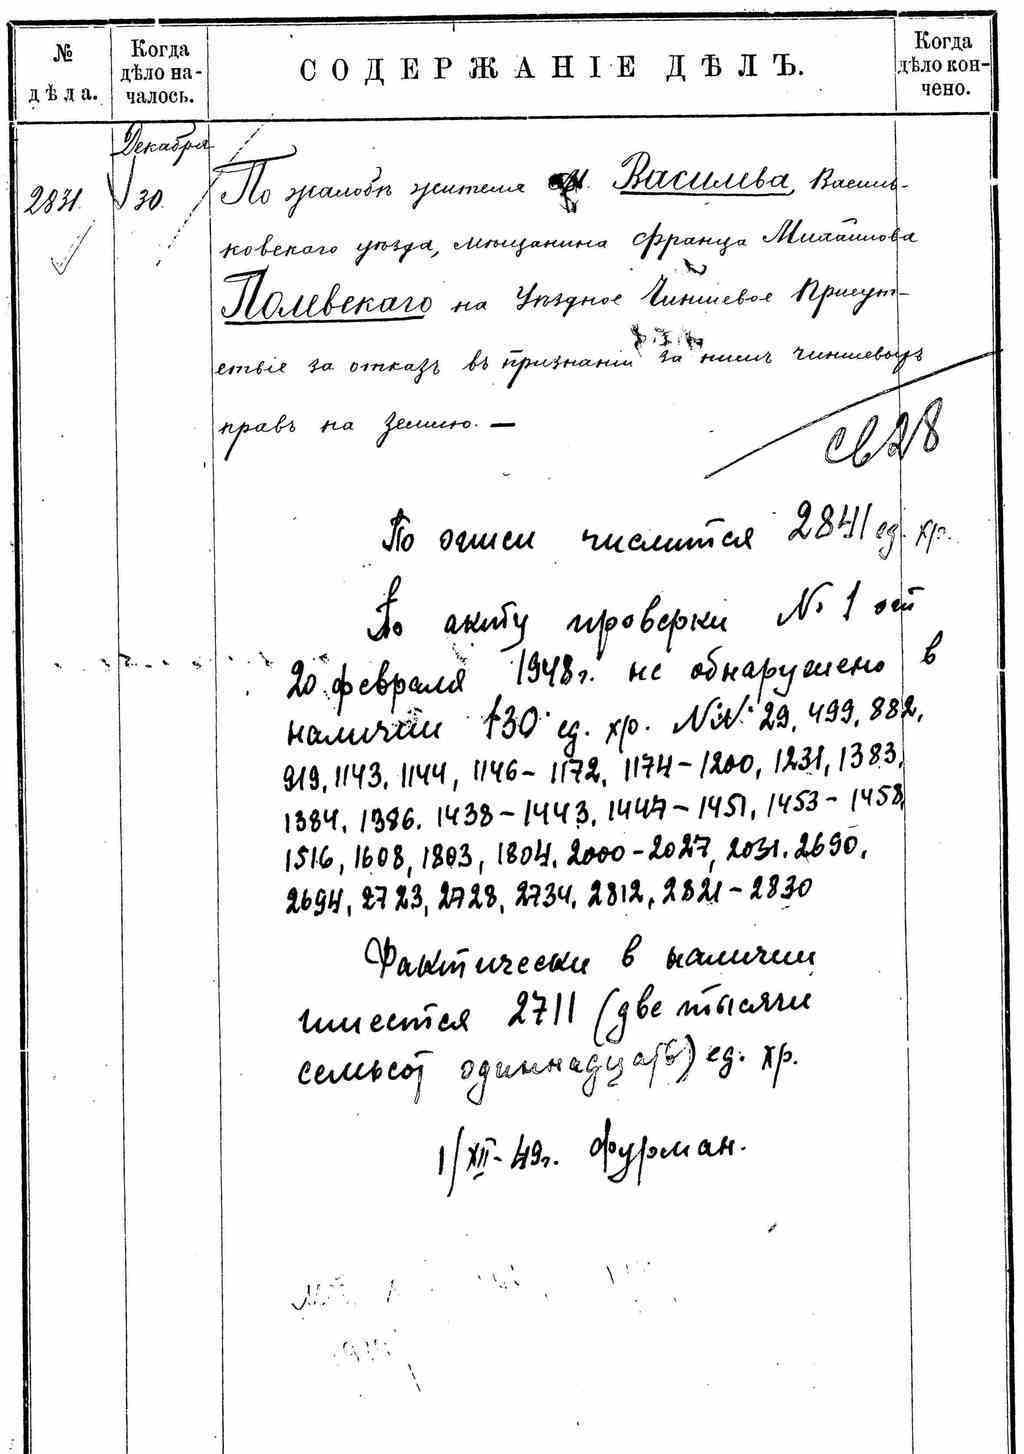 № дѣла.
Когда дѣло на-
чалось.
СОДЕРЖАНІЕ ДѢЛЪ.
Когда дѣло кон-
чено.
Декабря
2831. 30. По жалобѣ жителя м. Василева, Василь-
ковскаго уѣзда, мѣщанина Франца Михайлова
Полевскаго на Уѣздное Чиншевое Присут-
ствіе за отказъ въ признаніи за нимъ чиншевыхъ
правъ на землю. —
св 28
По описи числится 2841 ед. хр.
По акту проверки № 1 от
20 февраля 1948 г. не обнаружено в
наличии 130 ед. хр. №№ 29, 499, 882,
919, 1143, 1144, 1146-1172, 1174-1200, 1231, 1383,
1384, 1386, 1438-1443, 1447-1451, 1453-1458,
1516, 1608, 1803, 1804, 2000-2027, 2031, 2690,
2694, 2723, 2728, 2734, 2812, 2821-2830
Фактически в наличии
имеется 2711 (две тысячи
семьсот одиннадцать) ед. хр.
1/XII-49г. Фурман.